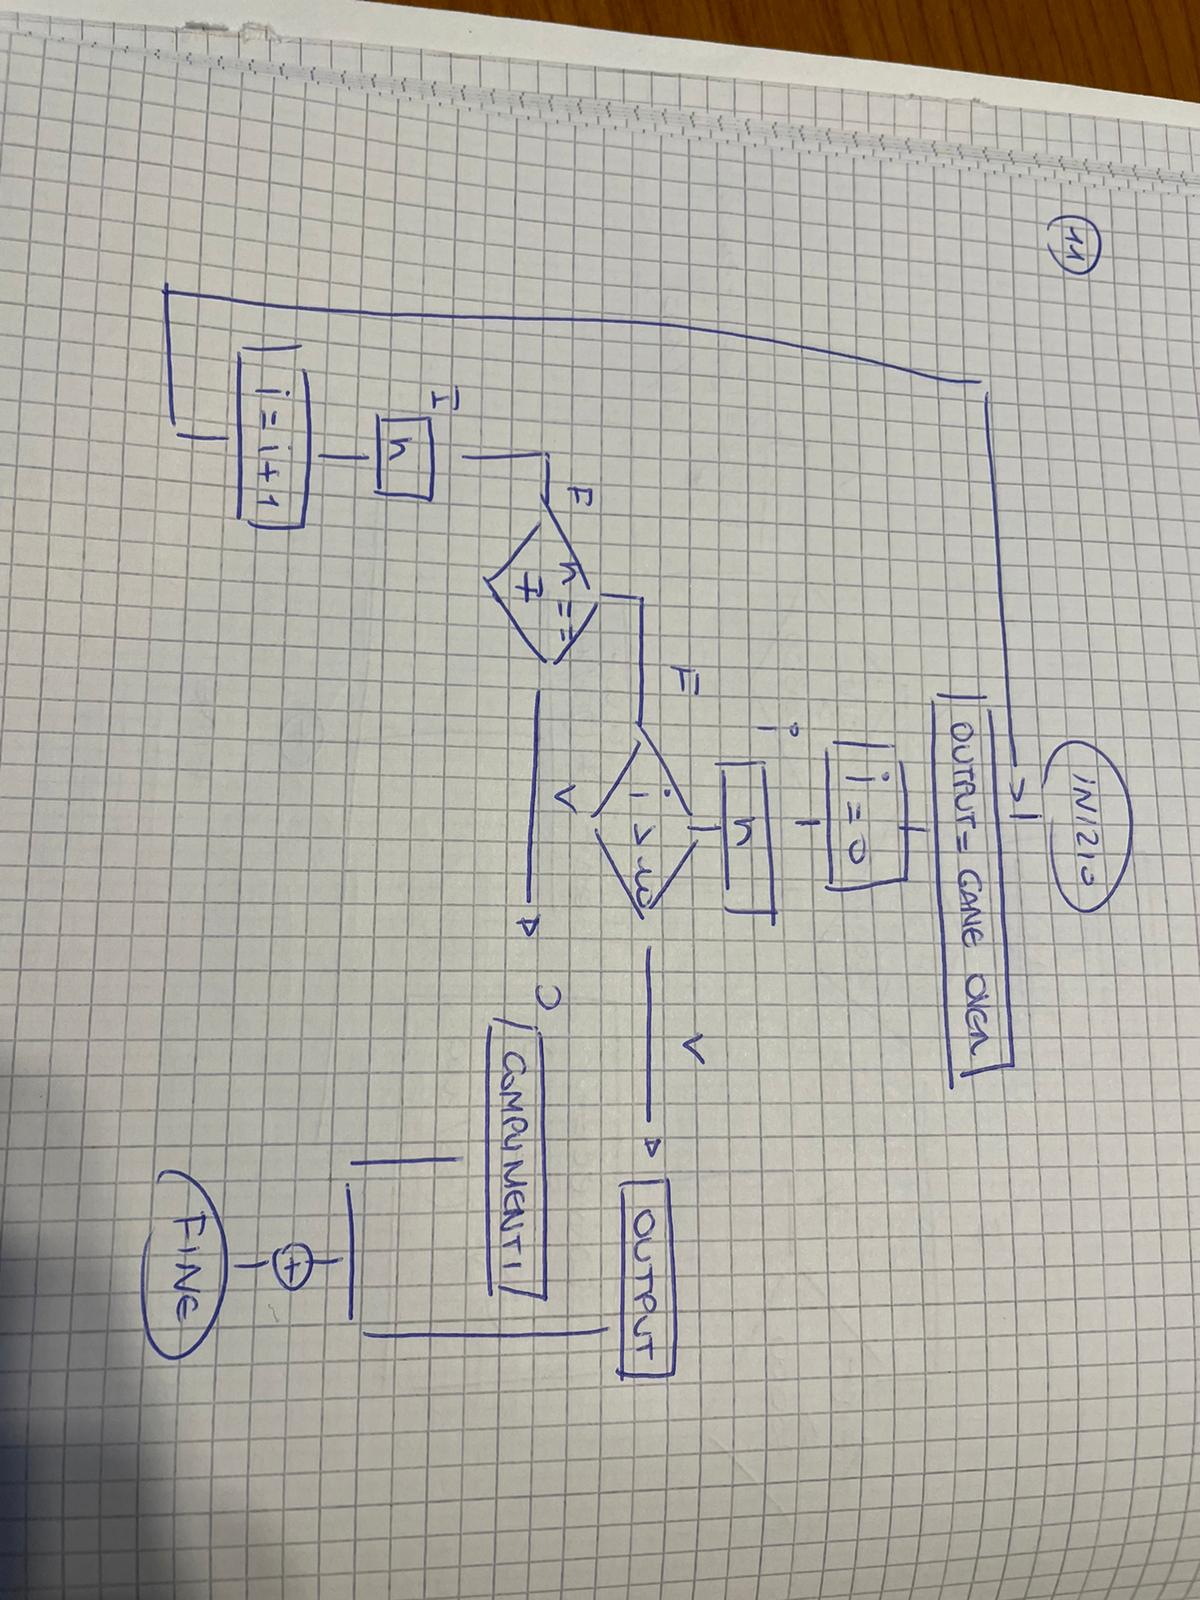 11
INIZIO
OUTPUT = GAME OVER
i = 0
i
n
F
i > 10
V
OUTPUT
F
n == 7
V
O
COMPLIMENTI
I
n
i = i + 1
+
FINE